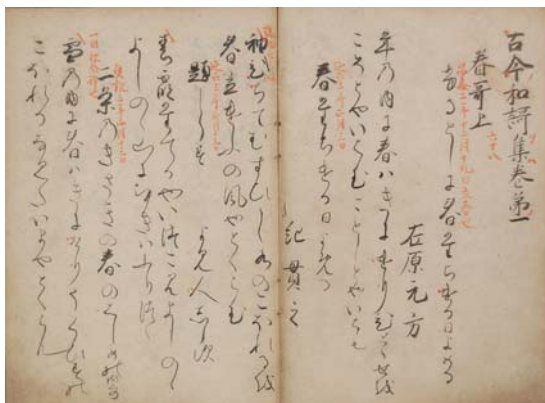 古今和謌集巻第一
春哥上
六十八
ふるとしに春たちける日よめる
在原元方
年の内に春はきにけりひとゝせを
こそとやいはむことしとやいはむ
春たちける日よめる
紀貫之
袖ひちてむすひし水のこほれるを
春立けふの風やとくらむ
題しらす
よみ人しらす
春霞たてるやいつこみよしのゝ
よしのゝ山に雪はふりつゝ
二条のきさきの春のはしめの御哥
雪の内に春はきにけりうくひすの
こほれるなみたいまやとくらん